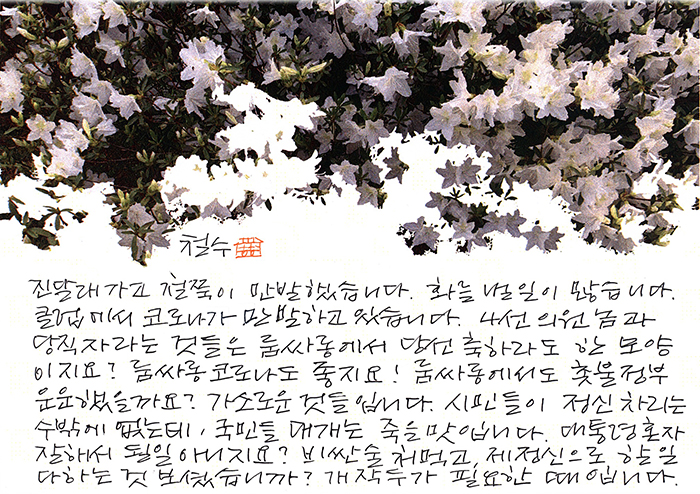 철수
진달래가고 철쭉이 만발했습니다. 화를 낼 일이 많습니다.
클럽에서 코로나가 만발하고 있습니다. 4선 의원놈과
당직자라는 것들은 룸싸롱에서 당선 축하라도 한 모양
이지요? 룸싸롱 코로나도 좋지요! 룸싸롱에서도 촛불정부
운운했을까요? 가소로운 것들입니다. 시민들이 정신 차리는
수밖에 없는데, 국민들 대개는 죽을 맛입니다. 대통령혼자
잘해서 될일 아니지요? 비싼술 처먹고, 제정신으로 할 일
다하는 것 보셨습니까? 개작두가 필요한 때입니다.